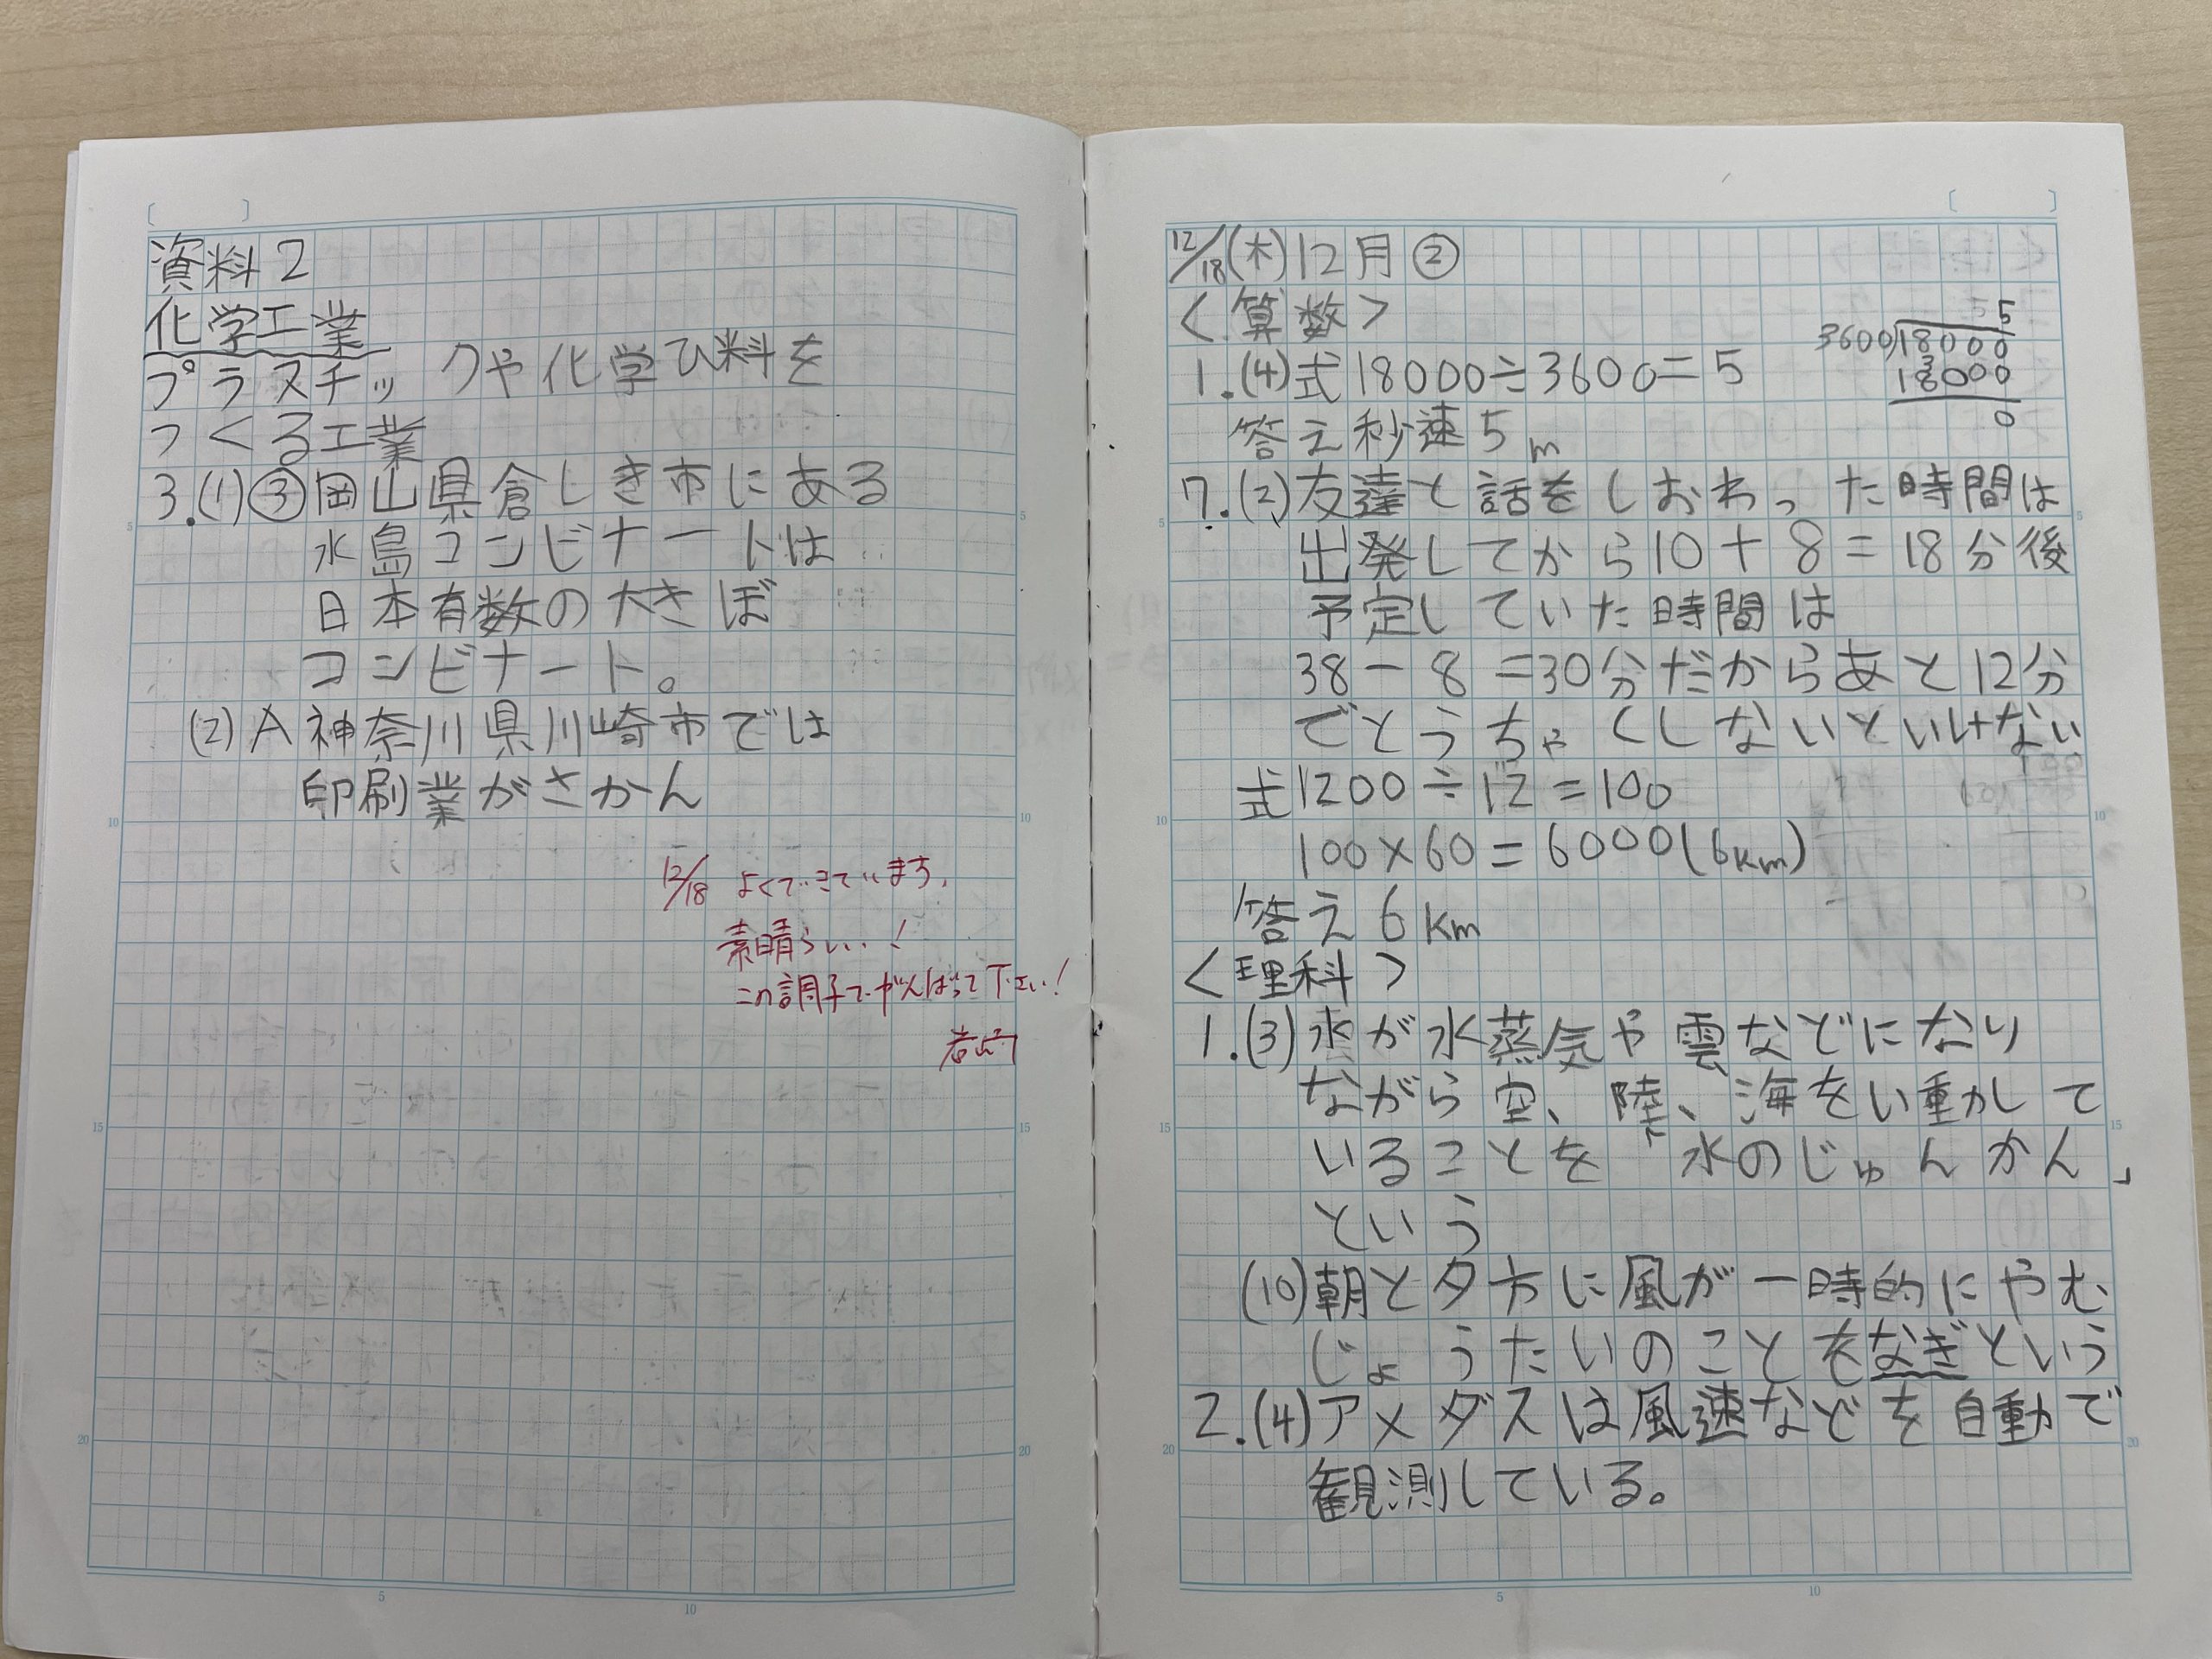 資料2
化学工業
プラスチックや化学ひ料を
つくる工業
3.(1)③岡山県倉しき市にある
水島コンビナートは
日本有数の大きぼ
コンビナート。
(2)A神奈川県川崎市では
印刷業がさかん
12/18 よくできています。
素晴らしい!
この調子でがんばって下さい!
5
10
15
20
5
10
15
20
5
10
12/18(木)12月②
<算数>
1.(4)式18000÷3600=5
答え秒速5m
5
3600)18000
18000
0
7.(2)友達と話をしおわった時間は
出発してから10+8=18分後
予定していた時間は
38-8=30分だからあと12分
でとうちゃくしないといけない
式1200÷12=100
100×60=6000(6km)
答え6km
<理科>
1.(3)水が水蒸気や雲などになり
ながら空、陸、海をい動して
いることを「水のじゅんかん」
という
(10)朝と夕方に風が一時的にやむ
じょうたいのことをなぎという
2.(4)アメダスは風速などを自動で
観測している。
5
10
15
20
5
10
15
20
5
10